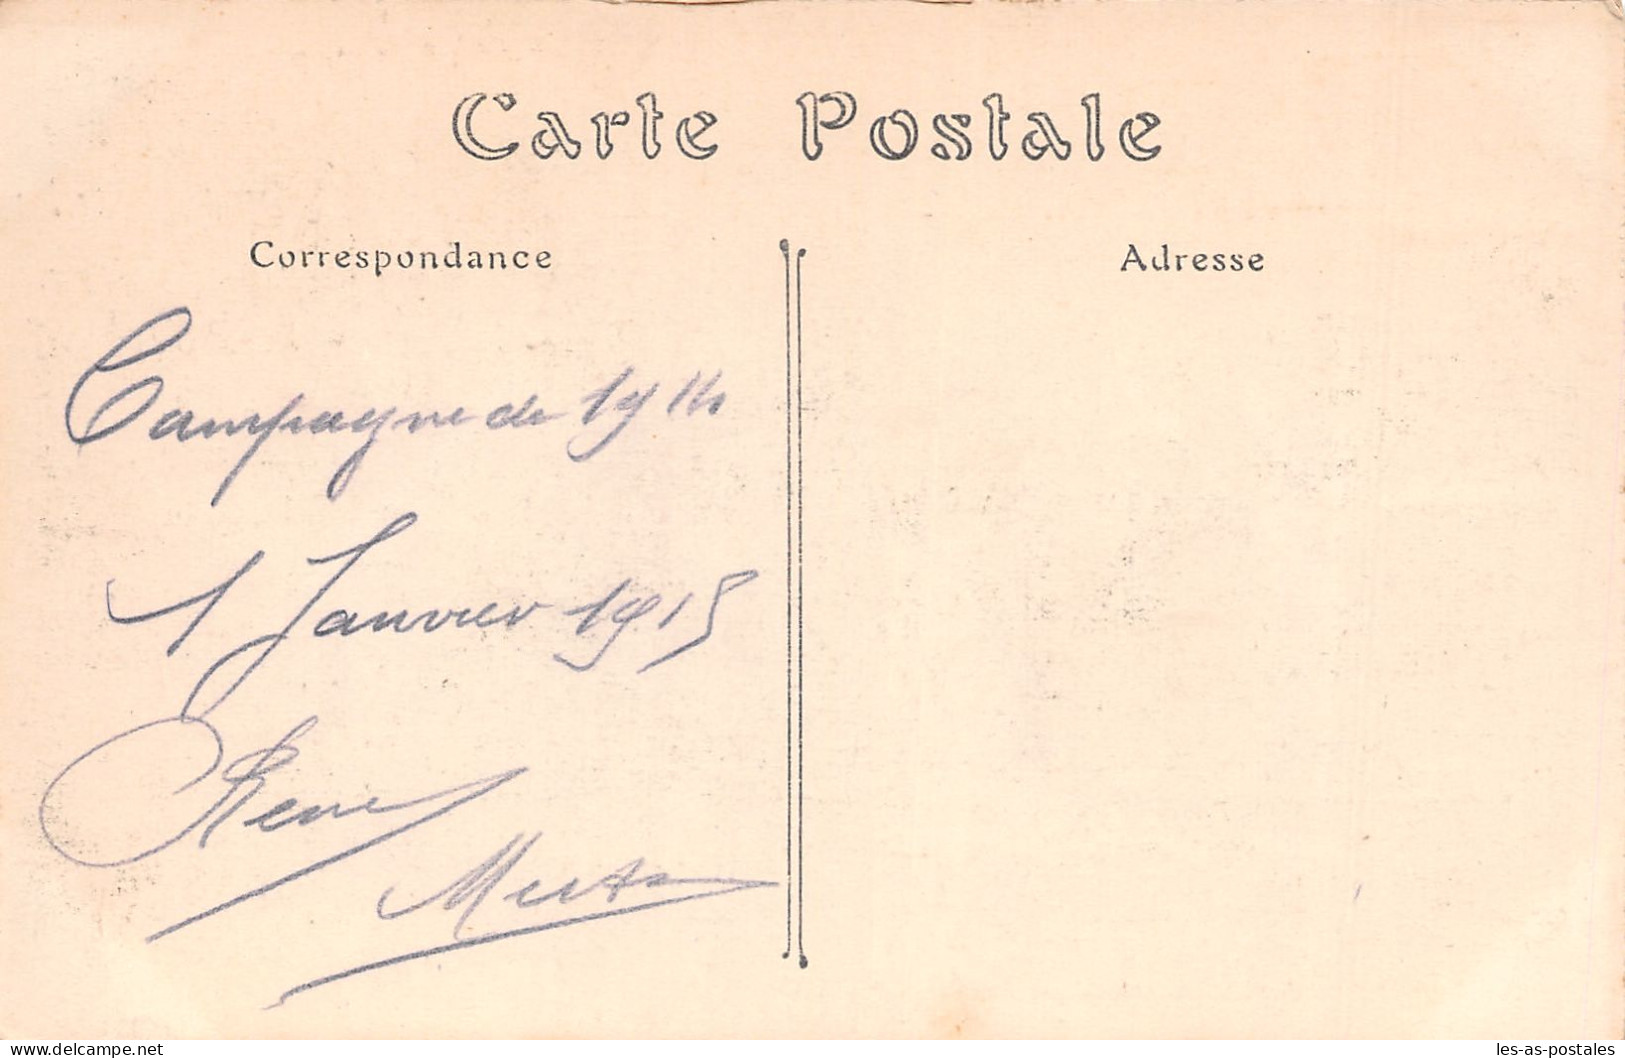 Carte Postale
Correspondance
Adresse
Campagne de 1914
1 Janvier 1915
René
delcampe.net
les-as-postales